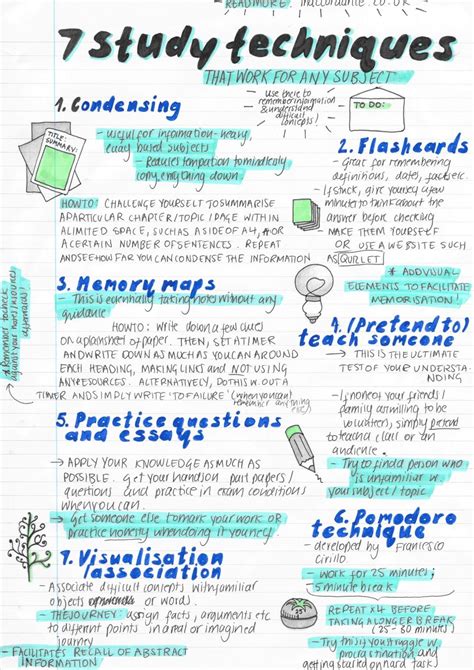 READ MORE:
7 study techniques
THAT WORK FOR ANY SUBJECT
Use these to
remember information
& understand
difficult
concepts!
TO DO:
1. Condensing
TITLE:
SUMMARY:
- useful for information-heavy,
based subjects
- Reduces temptation to mindlessly
copy everything down
HOW TO: CHALLENGE YOURSELF TO SUMMARISE
A PARTICULAR CHAPTER/TOPIC/PAGE WITHIN
A LIMITED SPACE, SUCH AS A SIDE OF A4, OR
A CERTAIN NUMBER OF SENTENCES. REPEAT
AND SEE HOW FAR YOU CAN CONDENSE THE INFORMATION
2. Flashcards
- Great for remembering
definitions, dates, facts etc.
- If stuck, give yourself a few
minutes to think about the
answer before checking
- MAKE THEM YOURSELF
OR USE A WEBSITE SUCH
AS QUIZLET
* ADD VISUAL
ELEMENTS TO FACILITATE
MEMORISATION!
3. Memory maps
- This is essentially taking notes without any
guidance
HOW TO: Write down a few cues
on a plain sheet of paper. THEN, SET A TIMER
AND WRITE DOWN AS MUCH AS YOU CAN AROUND
EACH HEADING, MAKING LINKS AND NOT USING
ANY RESOURCES. ALTERNATIVELY, DO THIS W.OUT A
TIMER AND SIMPLY WRITE 'TO FAILURE' (when you can't
remember anything
else)
* Remember to check
against your notes/resources
afterwards!
4. (Pretend to)
teach someone
→ THIS IS THE ULTIMATE
TEST OF YOUR UNDERSTA-
NDING
- If none of your friends/
family are willing to be
volunteers, simply pretend
to teach a class or an
audience.
- Try to find a person who
is unfamiliar w.
your subject/topic
5. Practice questions
and essays
→ APPLY YOUR KNOWLEDGE AS MUCH AS
POSSIBLE. Get your hands on past papers/
questions and practice in exam conditions
when you can.
→ Get someone else to mark your work OR
practice honesty when doing it yourself
6. Pomodoro
technique
- developed by Francesco
Cirillo
- work for 25 minutes;
5 minute break
REPEAT x4 BEFORE
TAKING A LONGER BREAK
- Try this if you struggle w
procrastination and
getting
7. Visualisation
/association
- Associate difficult concepts with familiar
objects or words.
- THE JOURNEY: assign facts, arguments etc
to different points in a real or imagined
journey
- FACILITATES RECALL OF ABSTRACT
INFORMATION